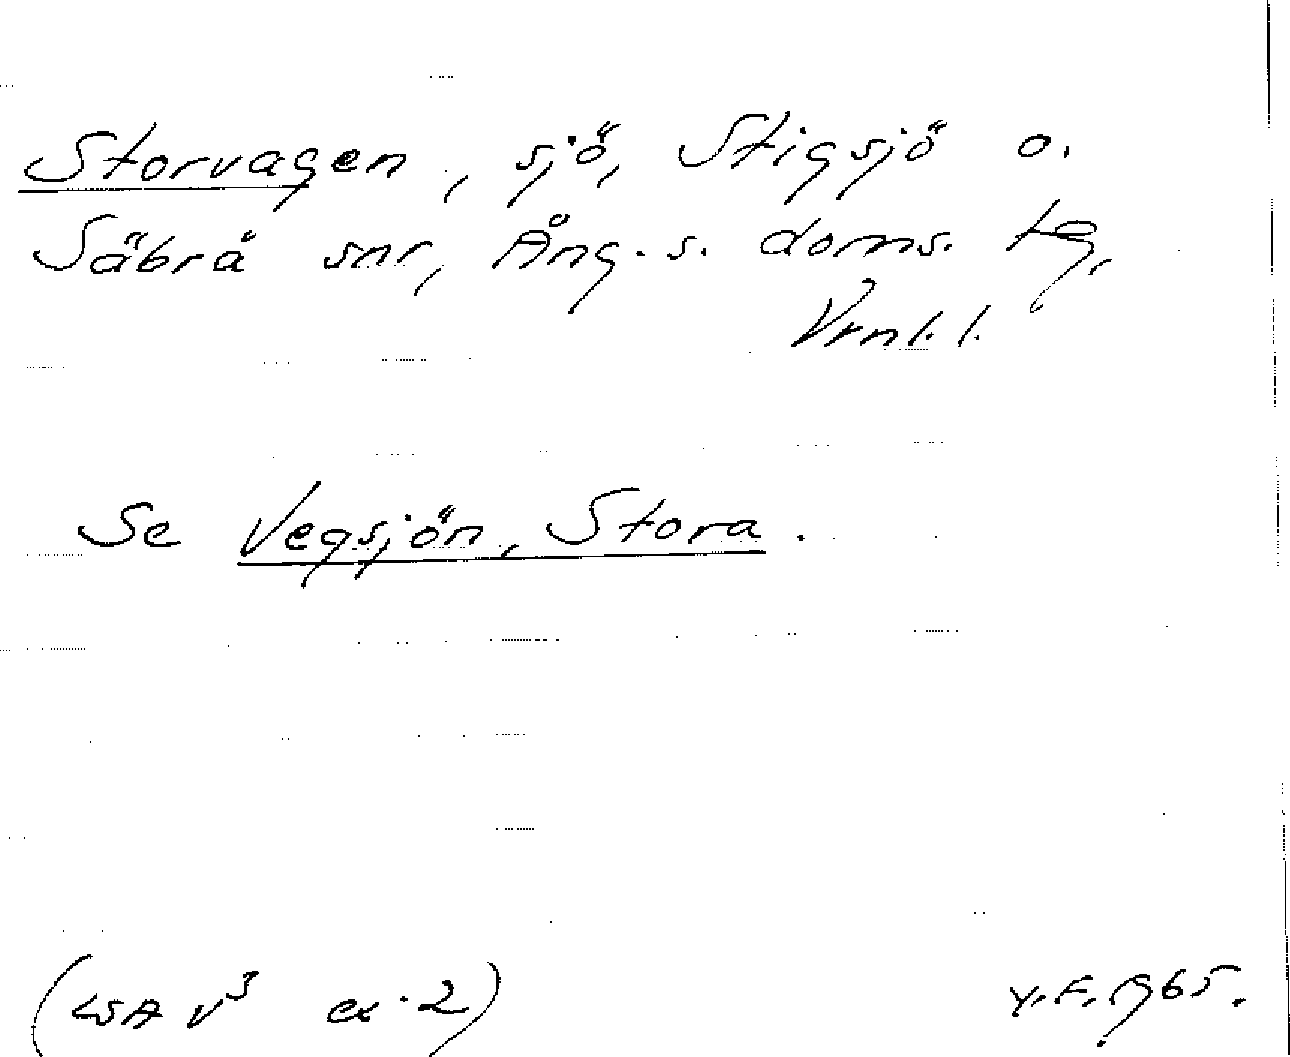 Storvagen, sjö, Stigsjö o.
Säbrå snr, Ång. s. doms. tg,
Vrnl. l.
Se Vegsjön, Stora.
(LSA V³ ex. 2) Y.F. 1965.